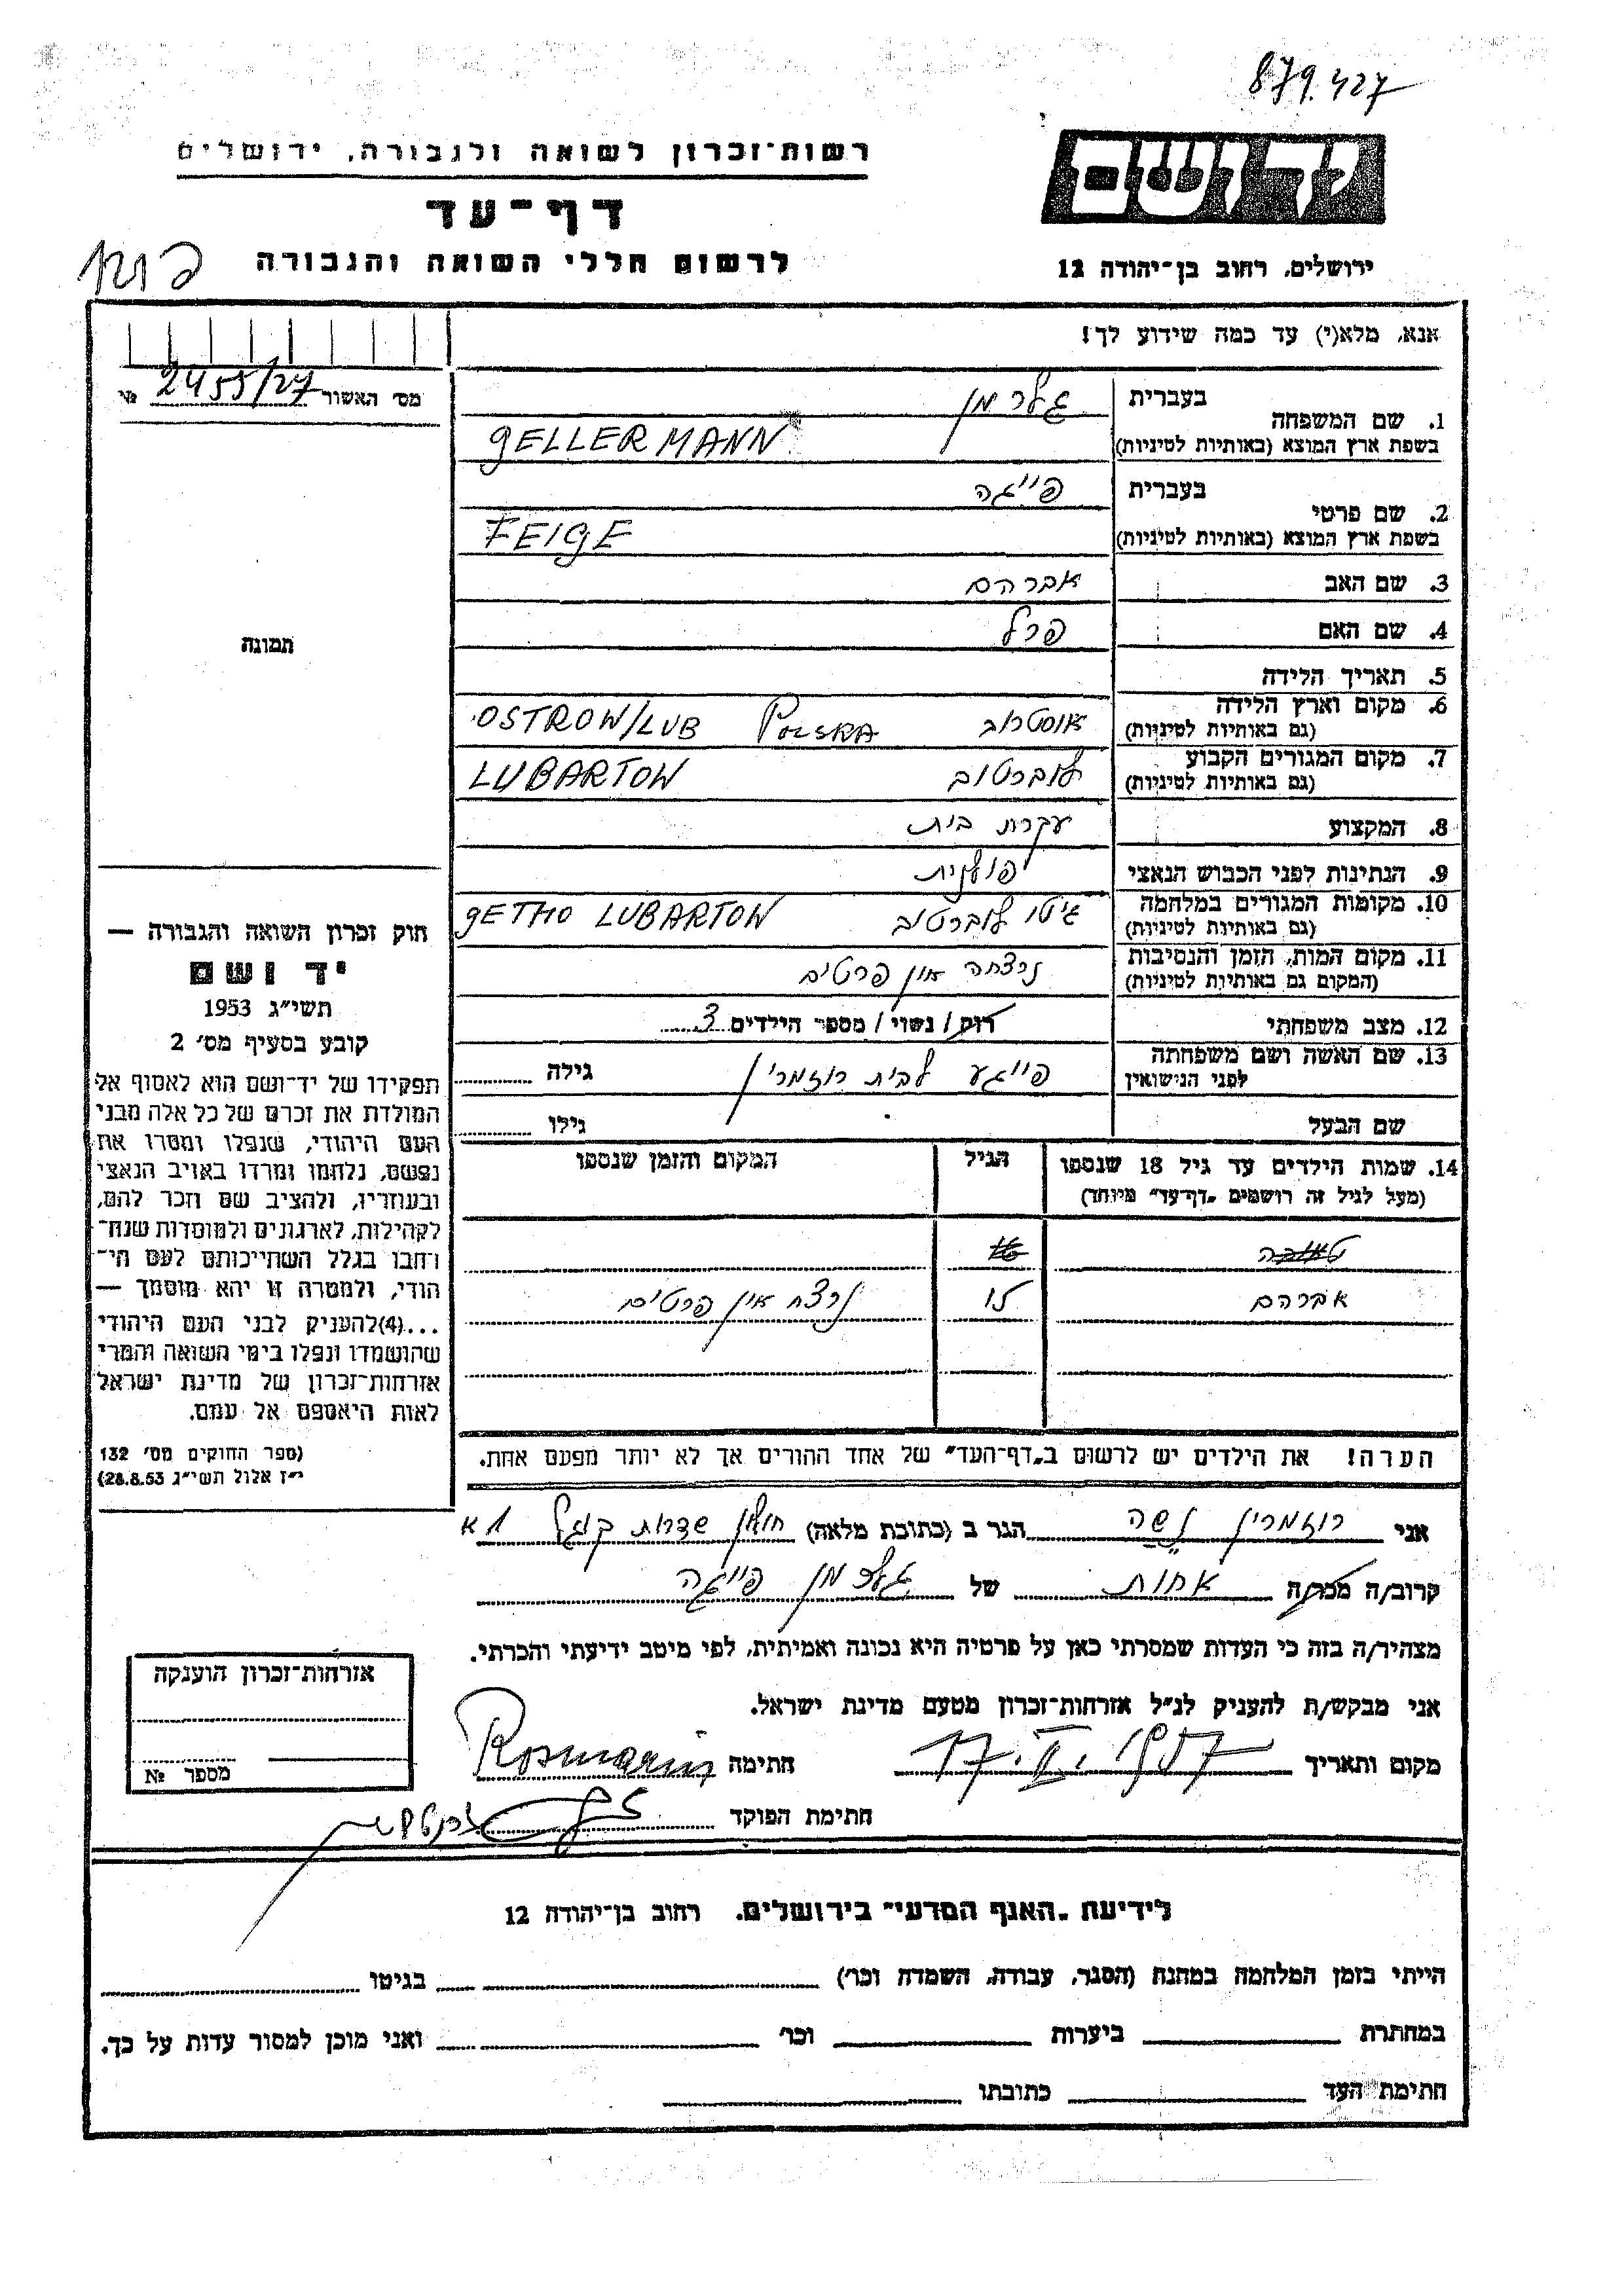 879.427
יד ושם
רשות־זכרון לשואה ולגבורה, ירושלים
דף־עד
לרשום חללי השואה והגבורה
ירושלים, רחוב בן־יהודה 12
אנא, מלא(י) עד כמה שידוע לך!
מס׳ האשור 2455/27 №
1. שם המשפחה בעברית גלרמן
בשפת ארץ המוצא (באותיות לטיניות) GELLERMANN
2. שם פרטי בעברית פייגה
בשפת ארץ המוצא (באותיות לטיניות) FEIGE
3. שם האב אברהם
4. שם האם פרל
תמונה
5. תאריך הלידה
6. מקום וארץ הלידה (גם באותיות לטיניות) אוסטרוב POLSKA OSTROW/LUB
7. מקום המגורים הקבוע (גם באותיות לטיניות) לוברטוב LUBARTOW
8. המקצוע עקרת בית
9. הנתינות לפני הכבוש הנאצי פולנית
10. מקומות המגורים במלחמה (גם באותיות לטיניות) גיטו לוברטוב GETHO LUBARTOW
11. מקום המות, הזמן והנסיבות (המקום גם באותיות לטיניות) נרצחה אין פרטים
12. מצב משפחתי רוק/ נשוי/ מספר הילדים 3
13. שם האשה ושם משפחתה לפני הנישואין פייגע לבית רוזמרין גילה
שם הבעל גילו
14. שמות הילדים עד גיל 18 שנספו הגיל המקום והזמן שנספו
(מעל לגיל זה רושמים „דף־עד״ מיוחד)
אברהם 15 נרצח אין פרטים
הערה! את הילדים יש לרשום ב„דף־העד״ של אחד ההורים אך לא יותר מפעם אחת.
חוק זכרון השואה והגבורה —
יד ושם
תשי״ג 1953
קובע בסעיף מס׳ 2
תפקידו של יד־ושם הוא לאסוף אל
המולדת את זכרם של כל אלה מבני
העם היהודי, שנפלו ומסרו את
נפשם, נלחמו ומרדו באויב הנאצי
ובעוזריו, ולהציב שם וזכר להם,
לקהילות, לארגונים ולמוסדות שנח־
רבו בגלל השתייכותם לעם הי־
הודי, ולמטרה זו יהא מוסמך —
...(4)להעניק לבני העם היהודי
שהושמדו ונפלו בימי השואה והמרי
אזרחות־זכרון של מדינת ישראל
לאות היאספם אל עמם.
(ספר החוקים מס׳ 132
י״ז אלול תשי״ג 28.8.53)
אני רוזמרין נשה הגר ב (כתובת מלאה) חולון שדרות קוגל 1 א
קרוב/ה מכר/ה אחות של גלרמן פייגה
מצהיר/ה בזה כי העדות שמסרתי כאן על פרטיה היא נכונה ואמיתית, לפי מיטב ידיעתי והכרתי.
אני מבקש/ת להעניק לנ״ל אזרחות־זכרון מטעם מדינת ישראל.
מקום ותאריך 17.II.1957 חתימה Rosmarin
חתימת הפוקד
אזרחות־זכרון הוענקה
מספר №
לידיעת „האגף המדעי״ בירושלים, רחוב בן־יהודה 12
הייתי בזמן המלחמה במחנה (הסגר, עבודה, השמדה וכר׳) בגיטו
במחתרת ביערות וכר׳ ואני מוכן למסור עדות על כך.
חתימת העד כתובתו